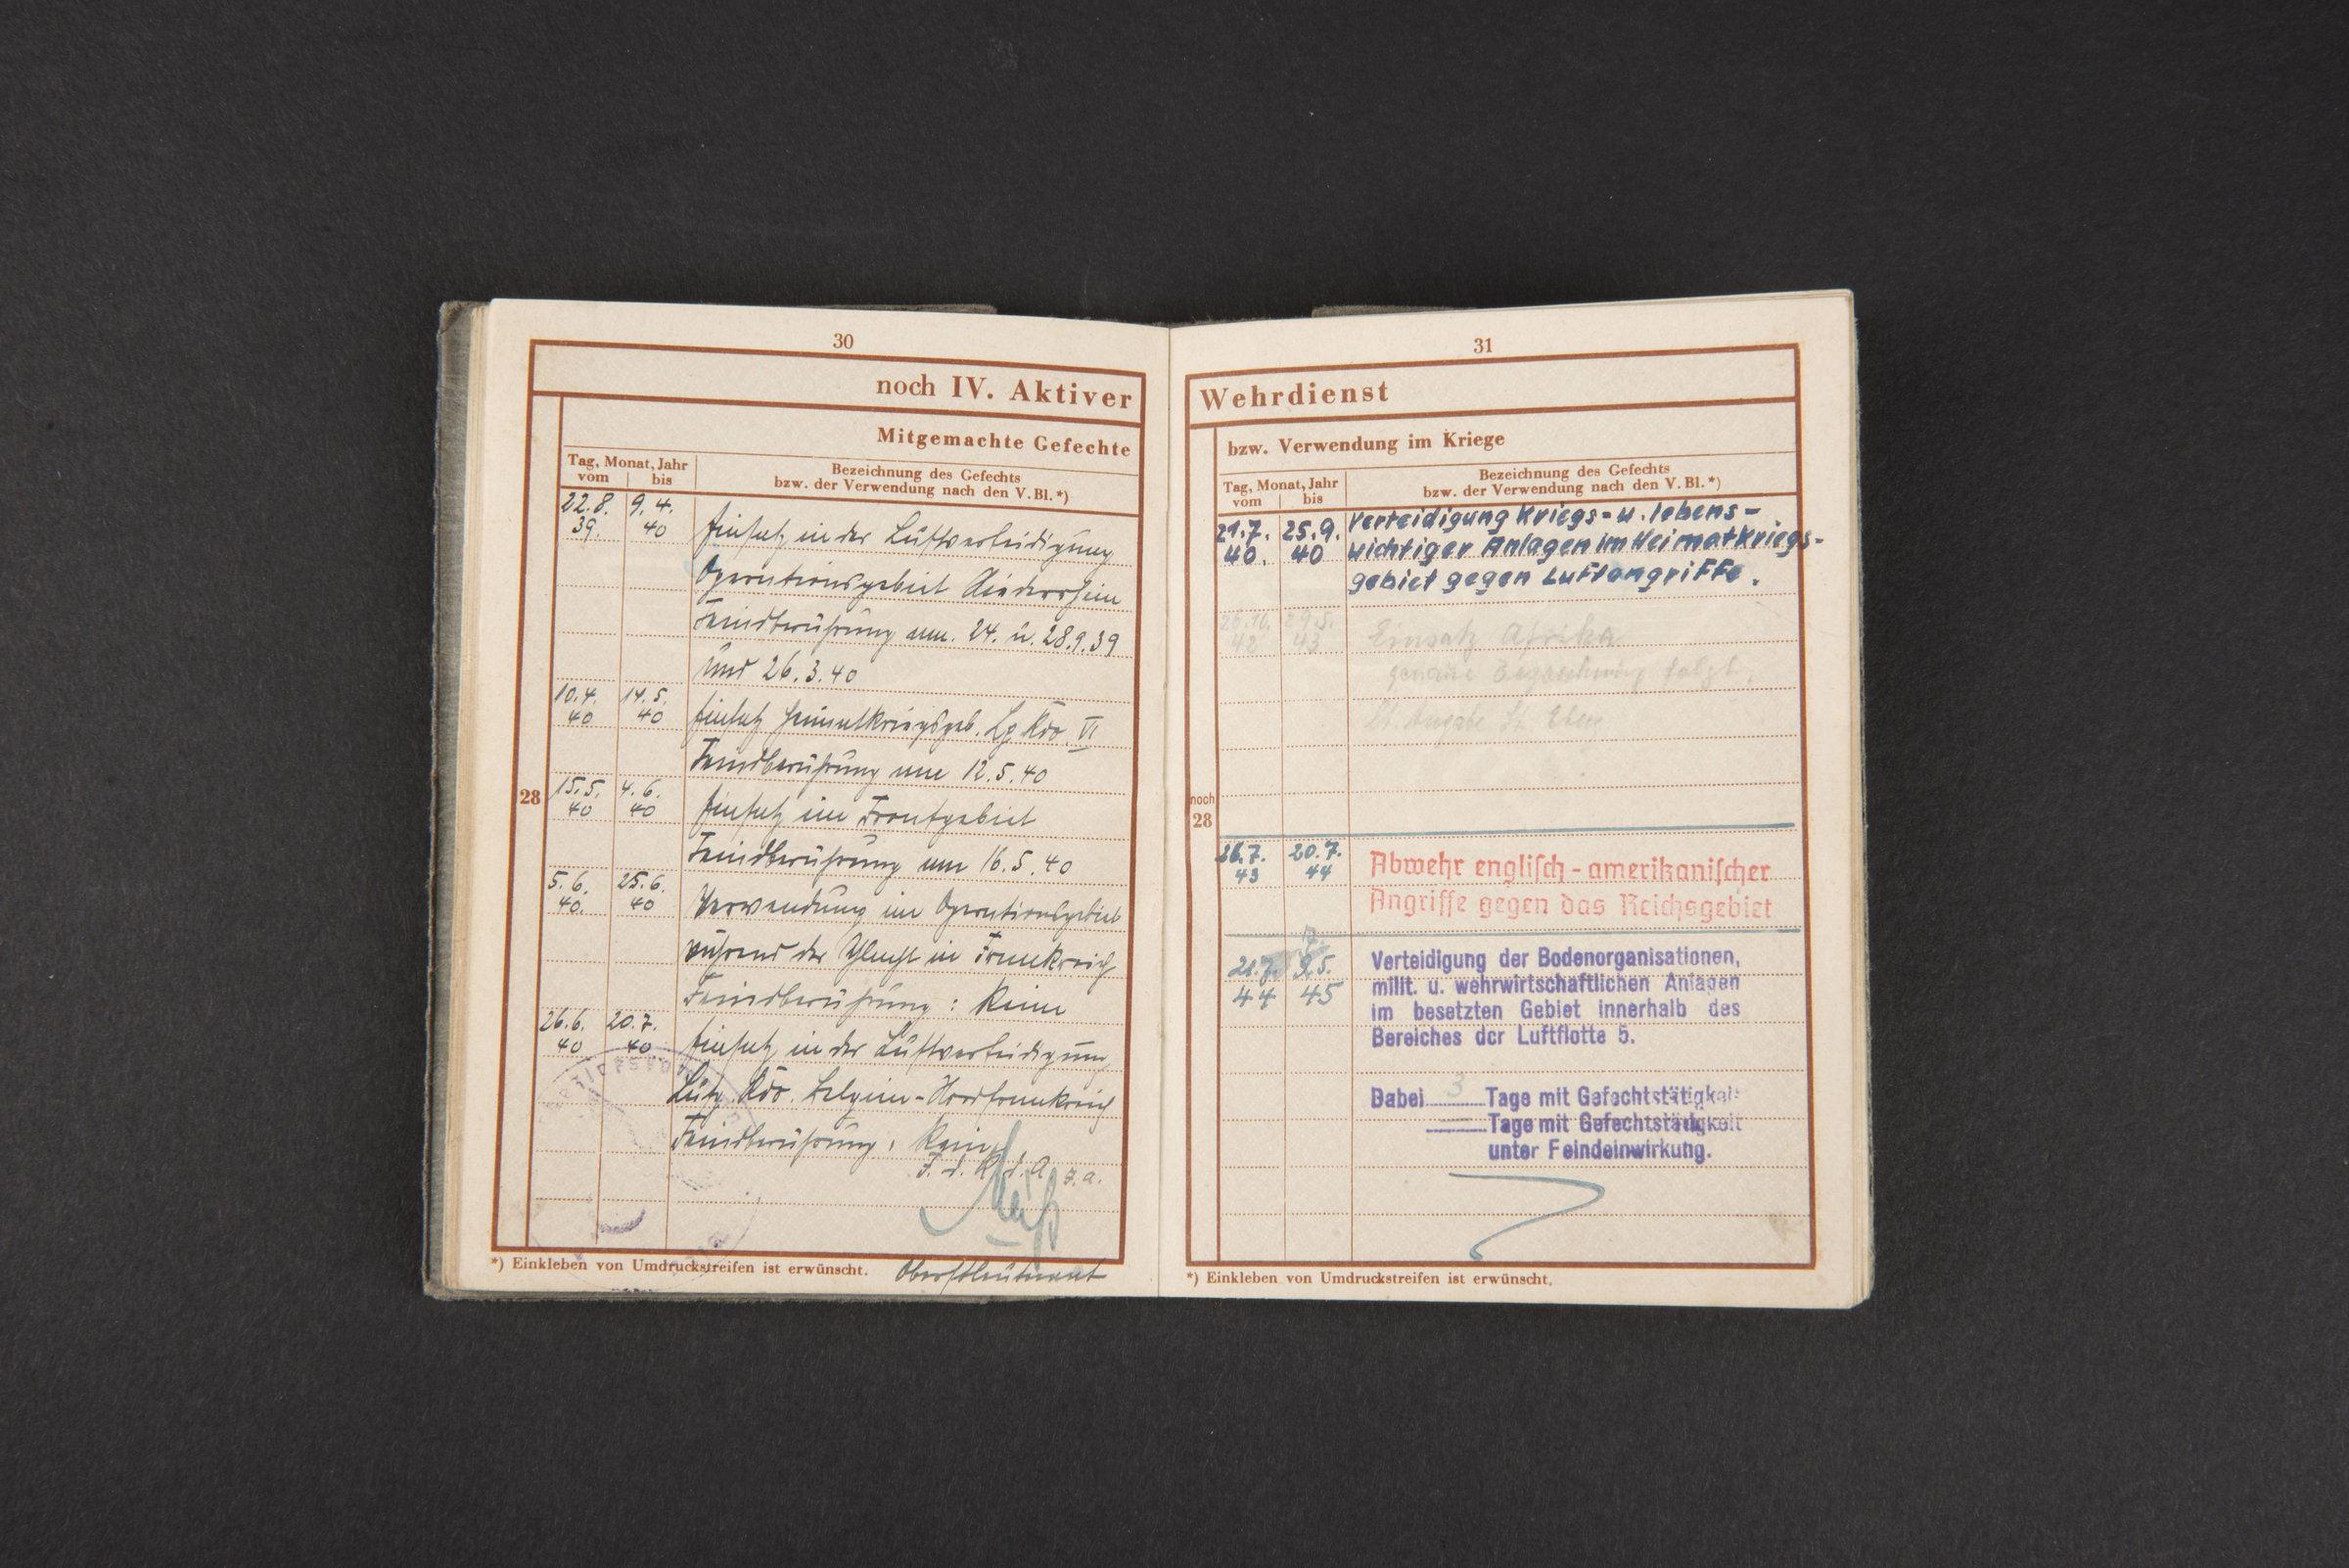 30
noch IV. Aktiver
Mitgemachte Gefechte
Tag, Monat, Jahr
vom bis
Bezeichnung des Gefechts
bzw. der Verwendung nach den V.Bl.*)
22.8. 9.4.
39. 40
Einsatz in der Luftverteidigung
Operationsgebiet Niederrhein
Feindberührung am 24. u. 28.9.39
und 26.3.40
10.4. 14.5.
40 40
Einsatz Heimatkriegsgeb. Lg Kdo. VI
Feindberührung am 12.5.40
28
15.5. 4.6.
40 40
Einsatz im Frontgebiet
Feindberührung am 16.5.40
5.6. 25.6.
40. 40
Verwendung im Operationsgebiet
während der Schlacht in Frankreich
Feindberührung: Keine
26.6. 20.7.
40 40
Einsatz in der Luftverteidigung
Luftg. Kdo. Belgien-Nordfrankreich
Feindberührung: Keine
F. d. R. d. A.
Oberstleutnant
*) Einkleben von Umdruckstreifen ist erwünscht.
31
Wehrdienst
bzw. Verwendung im Kriege
Tag, Monat, Jahr
vom bis
Bezeichnung des Gefechts
bzw. der Verwendung nach den V.Bl.*)
21.7. 25.9.
40. 40
Verteidigung kriegs- u. lebens-
wichtiger Anlagen im Heimatkriegs-
gebiet gegen Luftangriffe.
29.5.
42 43
Einsatz Afrika
genaue Bezeichnung folgt.
noch
28
26.7. 20.7.
43 44
Abwehr engliſch-amerikaniſcher
Angriffe gegen das Reichsgebiet
21.7. 9.5.
44 45
Verteidigung der Bodenorganisationen,
milit. u. wehrwirtschaftlichen Anlagen
im besetzten Gebiet innerhalb des
Bereiches der Luftflotte 5.
Dabei 3 Tage mit Gefechtstätigkeit
Tage mit Gefechtstätigkeit
unter Feindeinwirkung.
*) Einkleben von Umdruckstreifen ist erwünscht.